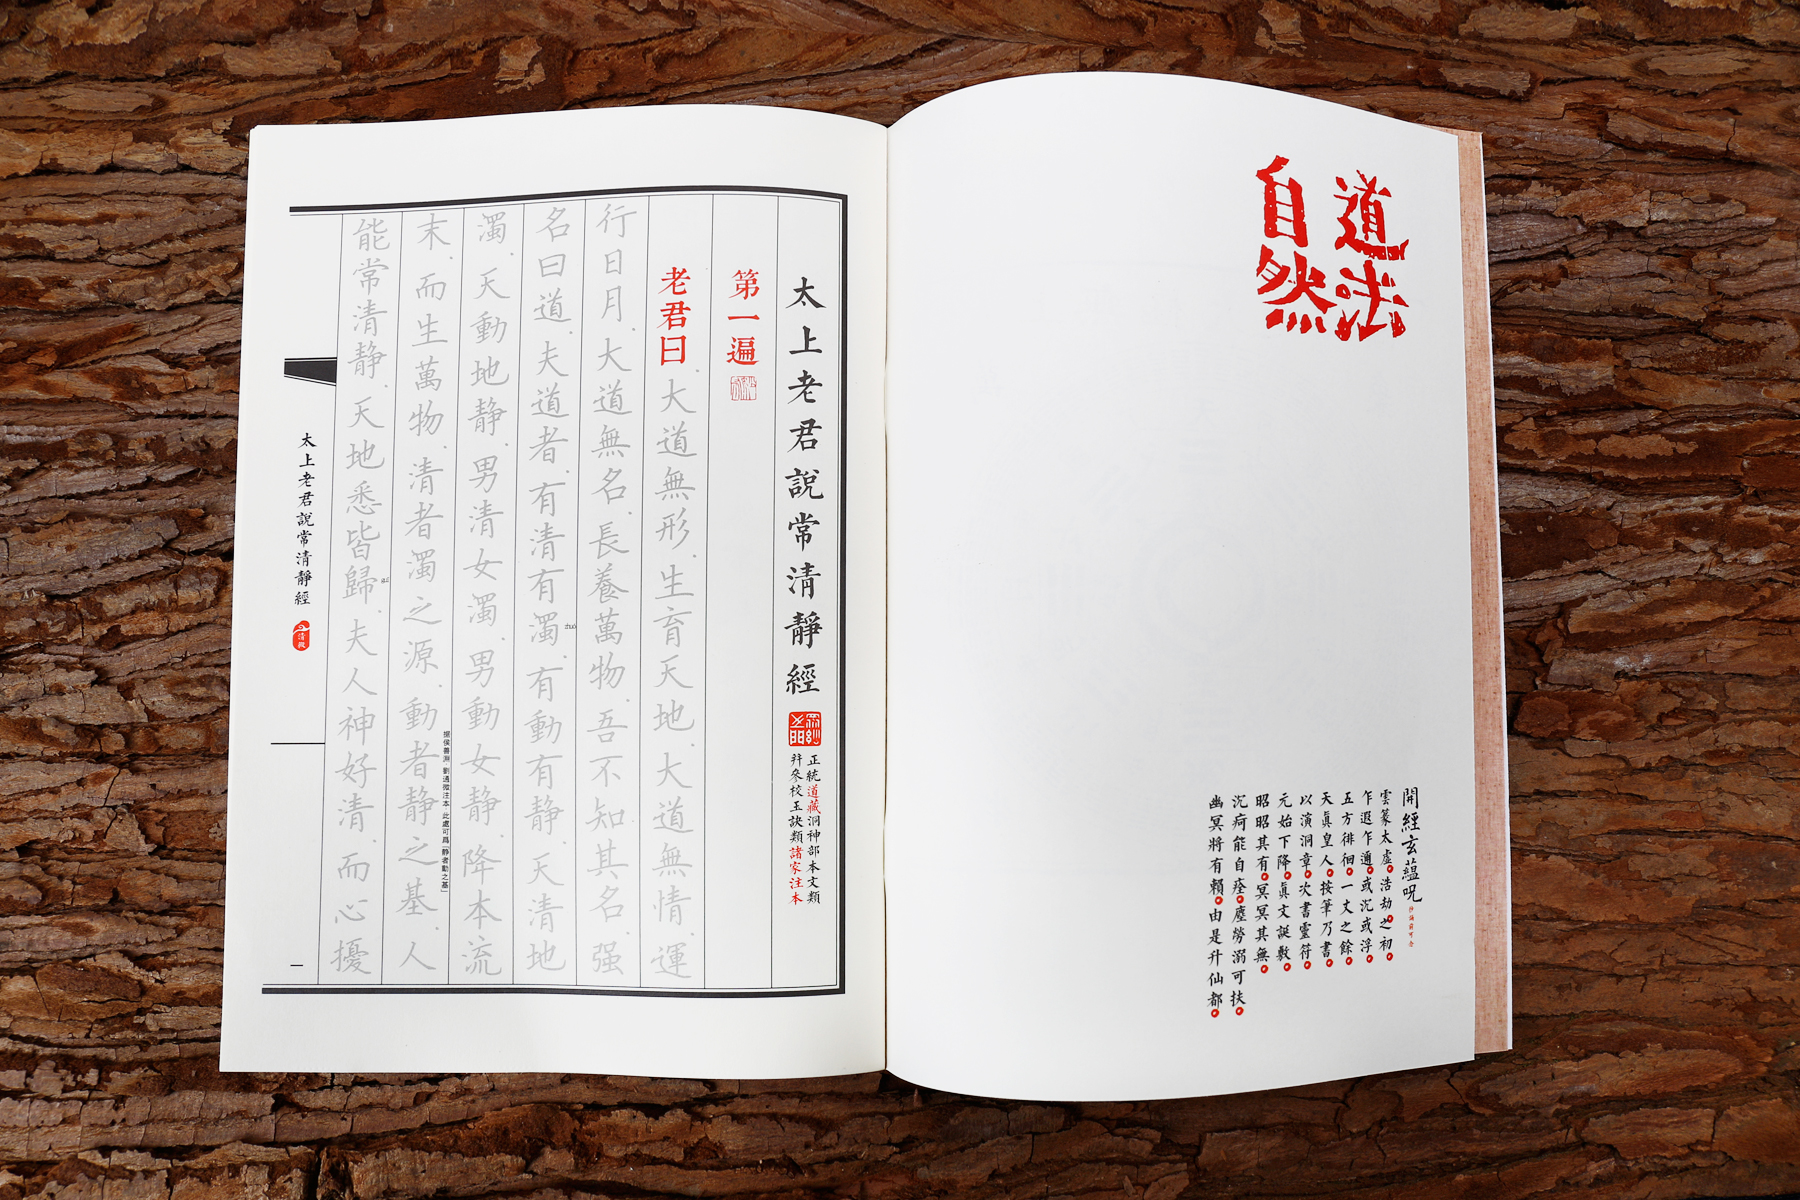 道法
自然
開經玄蘊呪
雲篆太虛。浩劫之初。
乍遐乍邇。或沉或浮。
五方徘徊。一丈之餘。
天眞皇人。按筆乃書。
以演洞章。次書靈符。
元始下降。眞文誕敷。
昭昭其有。冥冥其無。
沉疴能自痊。塵勞溺可扶。
幽冥將有賴。由是升仙都。
太上老君說常清靜經
正統道藏洞神部本文類
并參校玉訣類諸家注本
第一遍
老君曰、大道無形、生育天地、大道無情、運
行日月、大道無名、長養萬物、吾不知其名、强
名曰道、夫道者、有清有濁、有動有静、天清地
zhuó
濁、天動地静、男清女濁、男動女静、降本流
末、而生萬物、清者濁之源、動者静之基、人
據侯善淵 劉通微注本 此處可爲「静者動之基」
能常清静、天地悉皆歸、夫人神好清、而心擾
太上老君說常清靜經
一